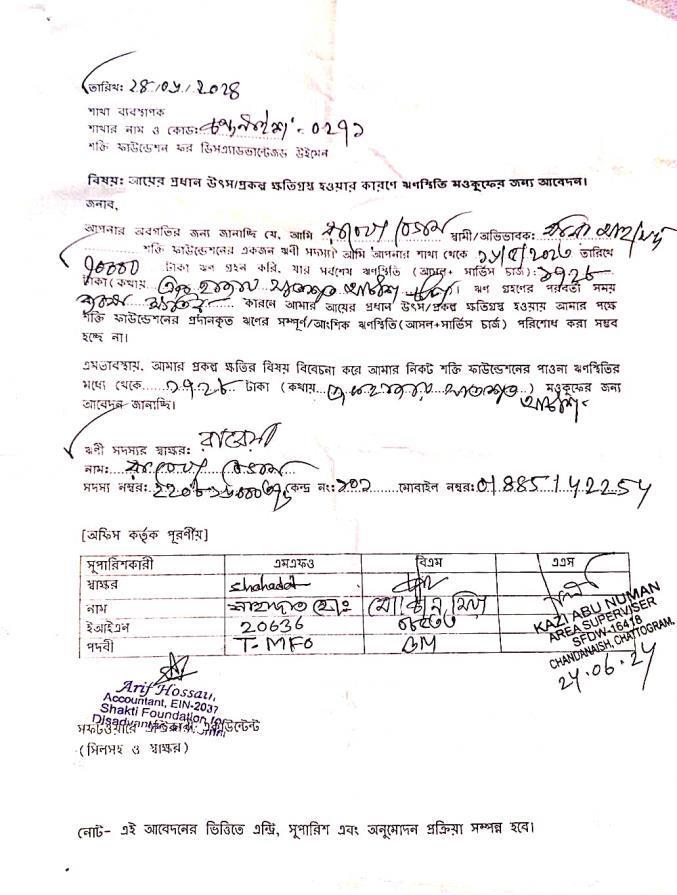 তারিখ: ২৪/০৬/২০২৪
শাখা ব্যবস্থাপক
শাখার নাম ও কোড: - ০২৭১
শক্তি ফাউন্ডেশন ফর ডিসএ্যাডভান্টেজড উইমেন
বিষয়: আয়ের প্রধান উৎস/প্রকল্প ক্ষতিগ্রস্থ হওয়ার কারণে ঋণস্থিতি মওকুফের জন্য আবেদন।
জনাব,
আপনার অবগতির জন্য জানাচ্ছি যে, আমি বেগম স্বামী/অভিভাবক:
শক্তি ফাউন্ডেশনের একজন ঋণী সদস্য। আমি আপনার শাখা থেকে তারিখে
টাকা ঋণ গ্রহন করি, যার সর্বশেষ ঋণস্থিতি (আসল+ সার্ভিস চার্জ):
টাকা(কথায় এক হাজার সাতশত আটাশ)। ঋণ গ্রহণের পরবর্তী সময়
কারনে আমার আয়ের প্রধান উৎস/প্রকল্প ক্ষতিগ্রস্থ হওয়ায় আমার পক্ষে
শক্তি ফাউন্ডেশনের প্রদানকৃত ঋণের সম্পূর্ণ/আংশিক ঋণস্থিতি(আসল+সার্ভিস চার্জ) পরিশোধ করা সম্ভব
হচ্ছে না।
এমতাবস্থায়, আমার প্রকল্প ক্ষতির বিষয় বিবেচনা করে আমার নিকট শক্তি ফাউন্ডেশনের পাওনা ঋণস্থিতির
মধ্যে থেকে ১৭২৮ টাকা (কথায় এক হাজার সাতশত আটাশ) মওকুফের জন্য
আবেদন জানাচ্ছি।
ঋণী সদস্যর স্বাক্ষর:
নাম: বেগম
সদস্য নম্বর: কেন্দ্র নং: ১০১ মোবাইল নম্বর: 01885142254
[অফিস কর্তৃক পূরণীয়]
সুপারিশকারী এমএফও বিএম এএস
স্বাক্ষর Shahadat
নাম শাহাদাত হোঃ
ইআইএন 20636
পদবী T-MFO BM
KAZI ABU NUMAN
AREA SUPERVISER
SFDW-16418
CHANDANAISH, CHATTOGRAM.
24.06.24
Arif Hossau,
Accountant, EIN-2037
Shakti Foundation for
সফটওয়ারে
(সিলসহ ও স্বাক্ষর)
নোট- এই আবেদনের ভিত্তিতে এন্ট্রি, সুপারিশ এবং অনুমোদন প্রক্রিয়া সম্পন্ন হবে।